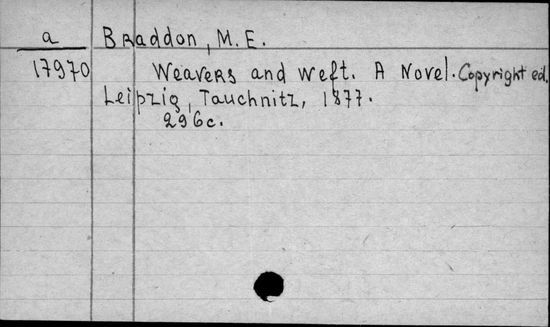 a Braddon, M. E.
17970 Weavers and weft. A Novel. Copyright ed.
Leipzig, Tauchnitz, 1877.
296c.